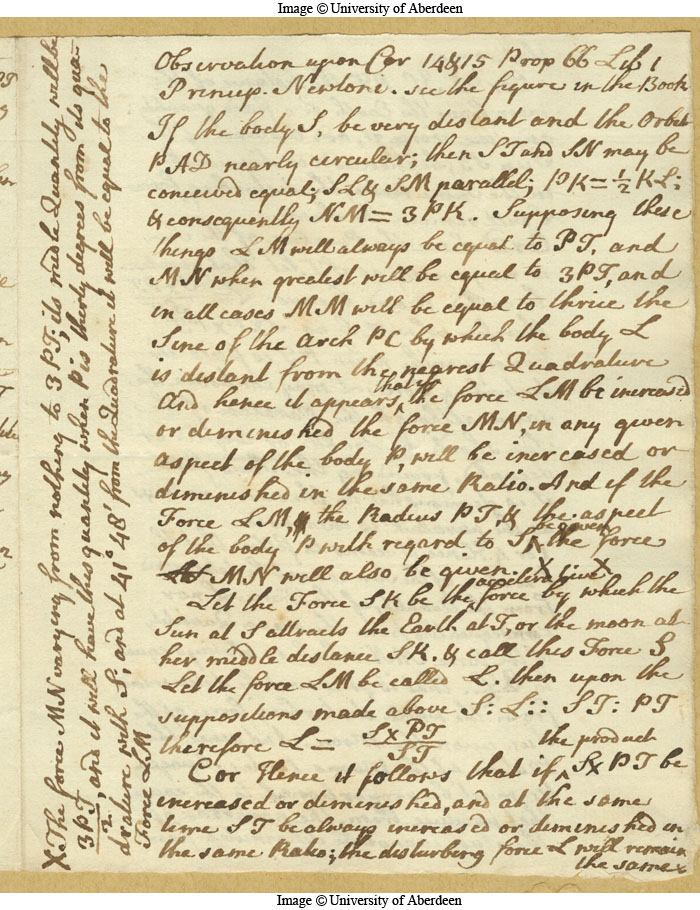 Image © University of Aberdeen
Observation upon Cor 14&15 Prop 66 Lib 1
Princip. Newtoni. see the figure in the Book
If the body S, be very distant and the Orbit
PAD nearly circular; then ST and SN may be
conceived equal; SL & SM parallel; PK = ½ KL:
& consequently NM = 3PK. Supposing these
things LM will always be equal to PT, and
MN when greatest will be equal to 3PT, and
in all cases MM will be equal to thrice the
Sine of the Arch PC by which the body L
is distant from the nearest Quadrature
And hence it appears, that if the force LM be increased
or diminished the force MN, in any given
aspect of the body P, will be increased or
diminished in the same Ratio. And if the
Force LM, the Radius PT, & the aspect
of the body P with regard to S, be given the force
MN will also be given. X X
Let the Force SK be the accelerative force by which the
Sun at S attracts the Earth at T, or the moon at
her middle distance SK. & call this Force S
Let the force LM be called L. then upon the
suppositions made above S: L:: ST: PT
therefore L = S x PT / ST
Cor Hence it follows that if the product S x PT be
increased or diminished, and at the same
time ST be always increased or diminished in
the same Ratio; the disturbing force L will remain
the same x
X The force MN varying from nothing to 3PT; its midle Quantity will be
3PT/2, and it will have this quantity when P is thirty degrees from its qua-
drature with S; and at 41° 48' from the Quadrature it will be equal to the
Force LM
PT
Image © University of Aberdeen